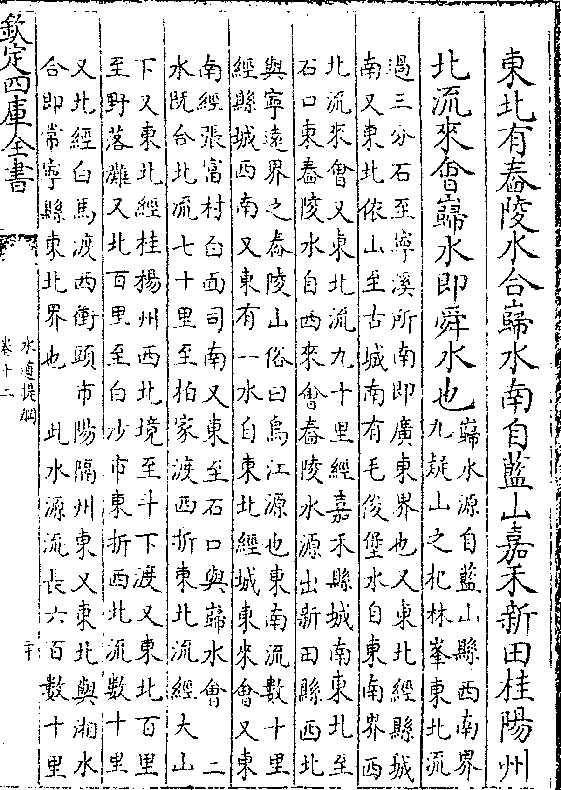 東北有舂陵水合巋水南自藍山嘉禾新田桂陽州
北流來會巋水即舜水也
巋水源自藍山縣西南界
九疑山之杞林峯東北流
過三分石至寧溪所南即廣東界也又東北經縣城
南又東北依山至古城南有毛俊堡水自東南界西
北流來會又東北流九十里經嘉禾縣城南東北至
石口東舂陵水自西來會舂陵水源出新田縣西北
與寧遠界之舂陵山俗曰烏江源也東南流數十里
經縣城西南又東有一水自東北經城東來會又東
南經張富村白面司南又東至石口與巋水會 二
水既合北流七十里至柏家渡西折東北流經大山
下又東北經桂楊州西北境至斗下渡又東北百里
至野落灘又北百里至白沙市東折西北流數十里
又北經白馬渡西衝頭市陽隔州東又東北與湘水
合即常寧縣東北界也 此水源流長六百數十里
欽定四庫全書
水道提綱
卷十二